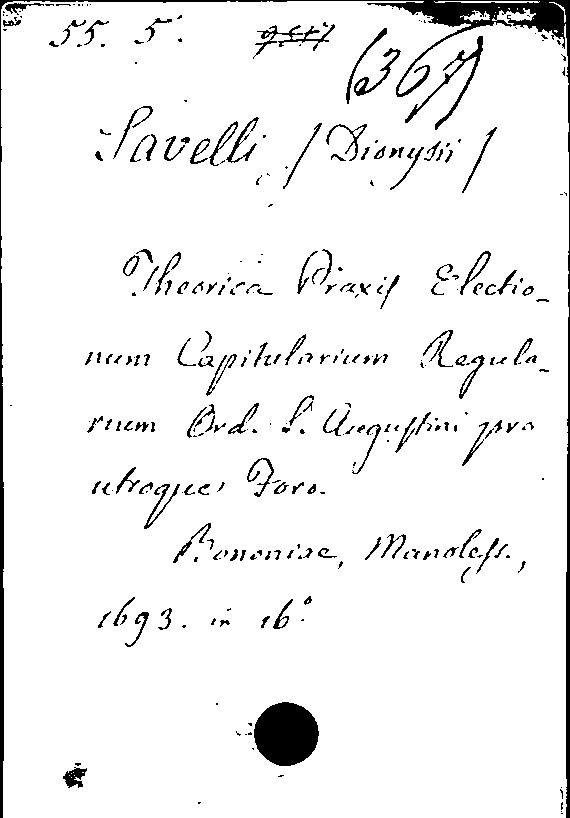 55. 5. (367)
Savelli / Dionysii /
Theorica Praxis Electio-
num Capitularium Regula-
rium Ord. S. Augustini pro
utroque Foro.
Bononiae, Manoless.,
1693. in 16°.